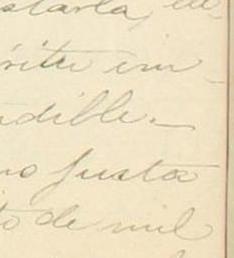 starla,
ritu im
dible.—
no justa
to de mil